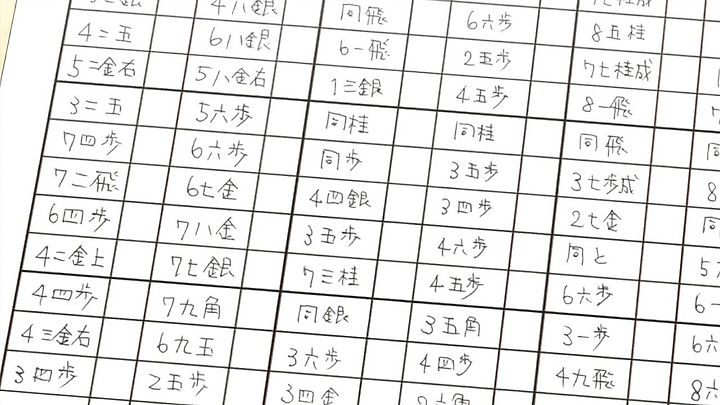 4八銀 同飛 6六歩
4二玉 6八銀 6一飛 2五歩 8五桂
5二金右 5八金右 1三銀 4五歩 7七桂成
3二玉 5六歩 同桂 同桂 8一飛
7四歩 6六歩 同歩 3五歩 同飛
7二飛 6七金 4四銀 3四歩 3七歩成
6四歩 7八金 3五歩 4六歩 2七金
4二金上 7七銀 7三桂 4五歩 同と
4四歩 7九角 同銀 3五角 6六歩
4三金右 6九玉 3六歩 4四歩 3一歩
3四歩 2五歩 3四金 4九飛